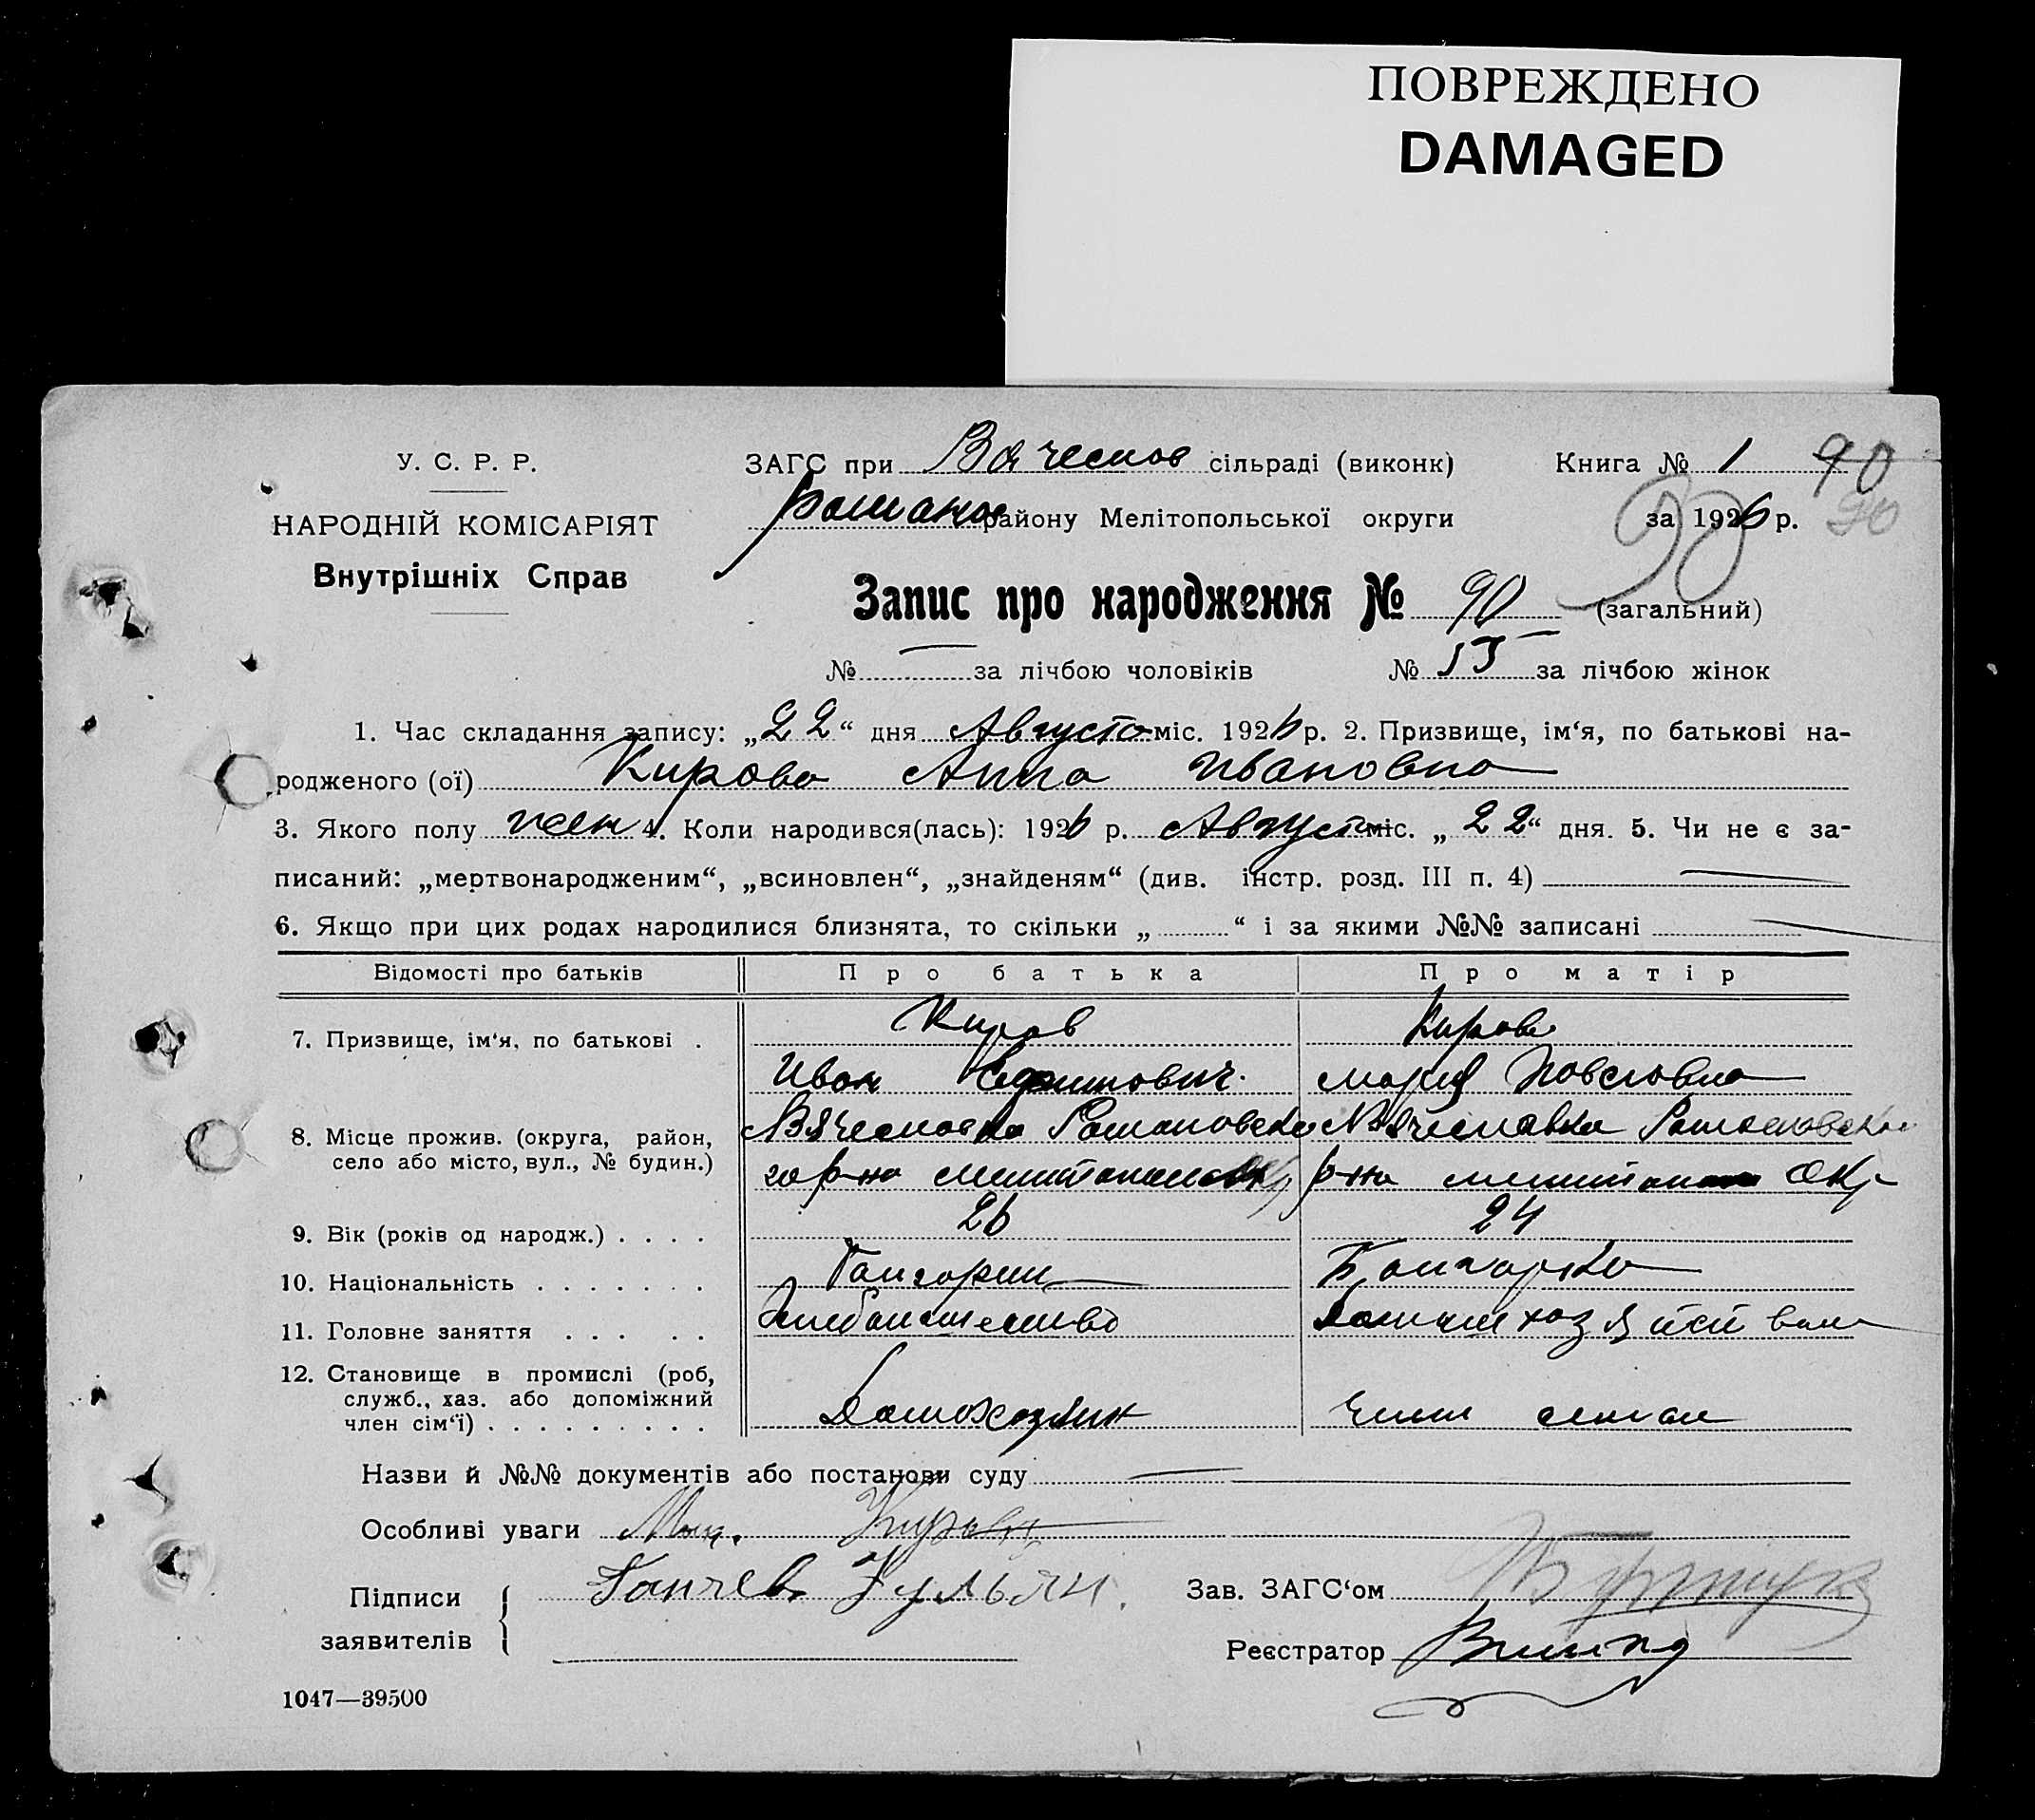 ПОВРЕЖДЕНО
DAMAGED
У. С. Р. Р.
НАРОДНІЙ КОМІСАРІЯТ
Внутрішніх Справ
ЗАГС при Вячеслов сільраді (виконк) Книга № 1 90
Романов району Мелітопольської округи за 1926 р. 90
90
Запис про народження № 90 (загальний)
№ — за лічбою чоловіків № 15 за лічбою жінок
1. Час складання запису: „22“ дня Августа міс. 1926 р. 2. Призвище, ім‘я, по батькові на-
родженого (ої) Кирова Анна Ивановна
3. Якого полу жен 4. Коли народився(лась): 1926 р. Август міс. „22“ дня. 5. Чи не є за-
писаний: „мертвонародженим“, „всиновлен“, „знайденям“ (див. інстр. розд. III п. 4) —
6. Якщо при цих родах народилися близнята, то скільки „ “ і за якими №№ записані —
Відомості про батьків Про батька Про матір
7. Призвище, ім‘я, по батькові . Киров Кирова
Иван Мария Павловна
8. Місце прожив. (округа, район, село або місто, вул., № будин.) Вячеславка Романовско Вячеславка Романовска
го р-на р-на Окр
9. Вік (років од народж.) . . . . 26 24
10. Національність . . . . . . . Болгарин Болгарка
11. Головне заняття . . . . . Хлебопашество Домаш хозяйства
12. Становище в промислі (роб, служб., хаз. або допоміжний член сім‘ї) . . . . . . . . . Домохозяин Член семьи
Назви й №№ документів або постанови суду —
Особливі уваги Киров
Підписи заявителів Ганчев Ульян. Зав. ЗАГС‘ом
Реєстратор
1047—39500